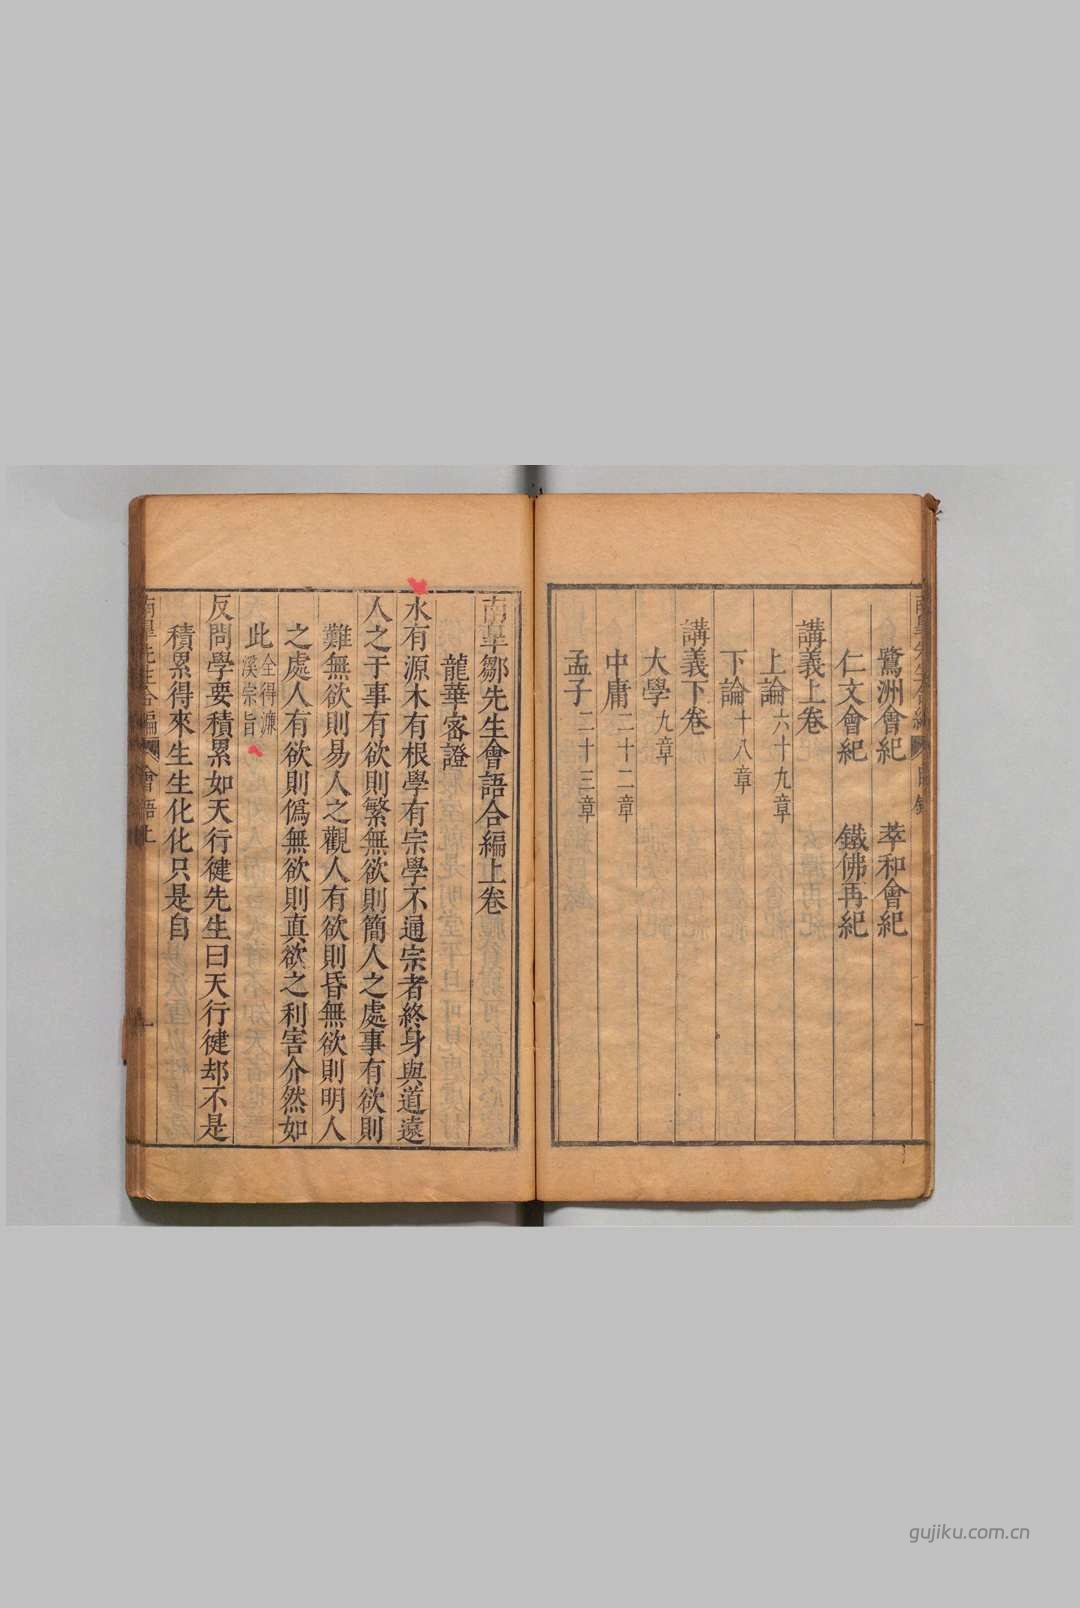 鷺洲會紀　萃和會紀
仁文會紀　鐵佛再紀
講義上卷
上論六十九章
下論十八章
講義下卷
大學九章
中庸二十二章
孟子二十三章
南臯鄒先生會語合編上卷
龍華密證
水有源木有根學有宗學不通宗者終身與道遠
人之于事有欲則繁無欲則簡人之處事有欲則
難無欲則易人之觀人有欲則昏無欲則明人
之處人有欲則僞無欲則真欲之利害介然如
此全得濂溪宗旨
反問學要積累如天行健先生曰天行健却不是
積累得來生生化化只是自
南臯先生合編　會語上　一
gujiku.com.cn